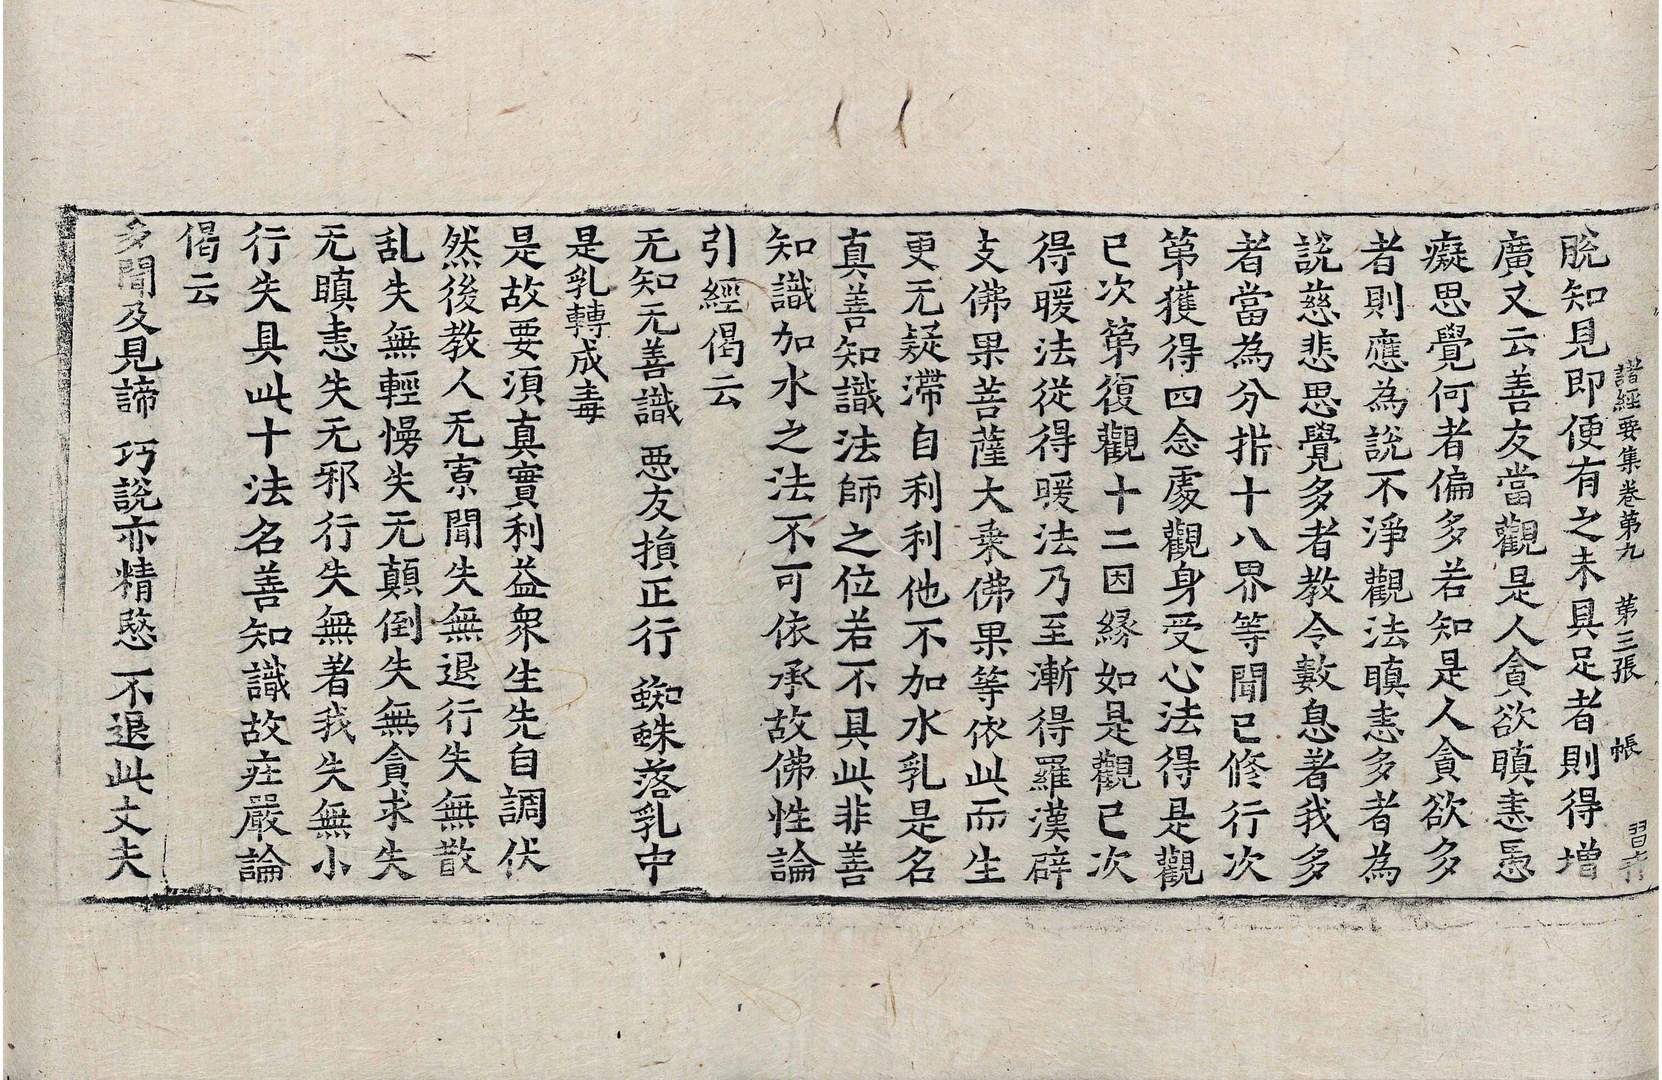 諸經要集卷第九　第三張　帳
脫知見即便有之未具足者則得增
廣又云善友當觀是人貪欲瞋恚愚
癡思覺何者偏多若知是人貪欲多
者則應為說不淨觀法瞋恚多者為
說慈悲思覺多者教令數息著我多
者當為分㭊十八界等聞已修行次
第獲得四念處觀身受心法得是觀
已次第復觀十二因緣如是觀已次
得暖法從得暖法乃至漸得羅漢辟
支佛果菩薩大乘佛果等依此而生
更无疑滯自利利他不加水乳是名
真善知識法師之位若不具此非善
知識加水之法不可依承故佛性論
引經偈云
无知无善識　惡友損正行　蜘蛛落乳中
是乳轉成毒
是故要須真實利益眾生先自調伏
然後教人无寡聞失無退行失無散
乱失無輕慢失无顛倒失無貪求失
无瞋恚失无邪行失無著我失無小
行失具此十法名善知識故莊嚴論
偈云
多聞及見諦　巧說亦精愍　不退此丈夫